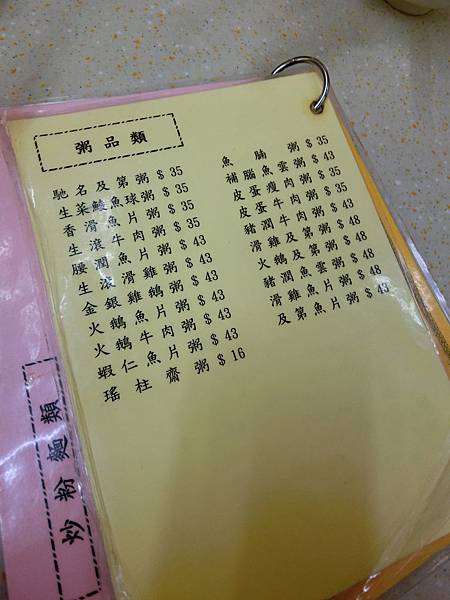 粥品類
馳名及第粥 $ 35
生菜鯪魚球粥 $ 35
香滑魚片粥 $ 35
生滾牛肉粥 $ 35
腰潤魚片粥 $ 43
生滾滑雞粥 $ 43
金銀雞鵝粥 $ 43
火鵝魚片粥 $ 43
火鵝牛肉粥 $ 43
蝦仁魚片粥 $ 43
瑤柱齋粥 $ 16
魚腩粥 $ 35
補腦魚雲粥 $ 43
皮蛋瘦肉粥 $ 35
皮蛋牛肉粥 $ 35
豬潤牛肉粥 $ 43
滑雞及第粥 $ 48
火鵝及第粥 $ 48
豬潤魚雲粥 $ 48
滑雞魚片粥 $ 48
及第魚片粥 $ 43
炒粉麵類